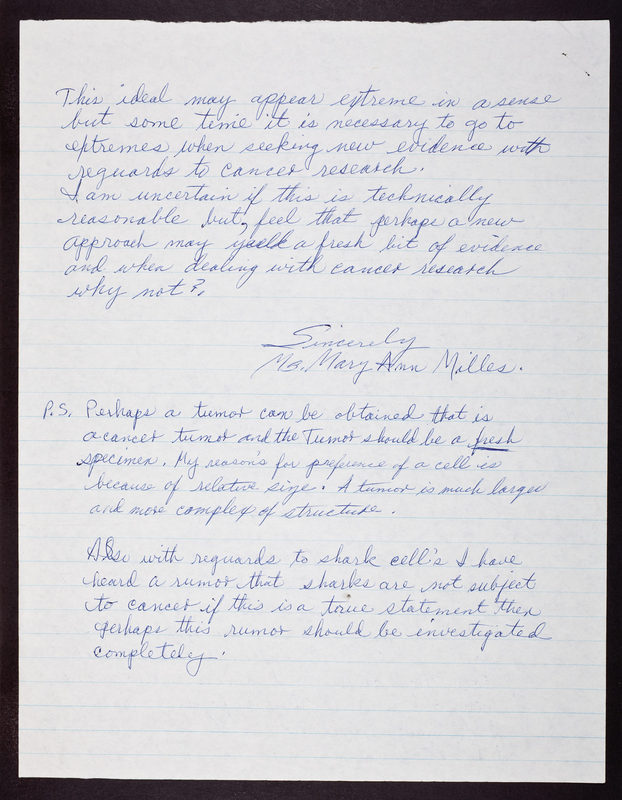 This ideal may appear extreme in a sense
but some teime it is necessary to go to
extremes when seeking new evidence with
reguards to cancer research.
I am uncertain if this is technically
reasonable but, feel that perhaps a new
approach may a fresh bit of evidence
and when dealing with cancer research
why not?,
Sincerely
Ms. Mary Ann Milles.
P.S. Perhaps a tumor can be obtained that is
a cancer tumor and the Tumor should be a fresh
specimen. My reason's for preference of a cell is
because of relative size. A tumor is much larger
and more complex of structure.
Also with reguards to shark cell's I have
heard a rumor that sharks are not subject
to cancer if this is a true statement then
perhaps this rumor should be investigated
completely.